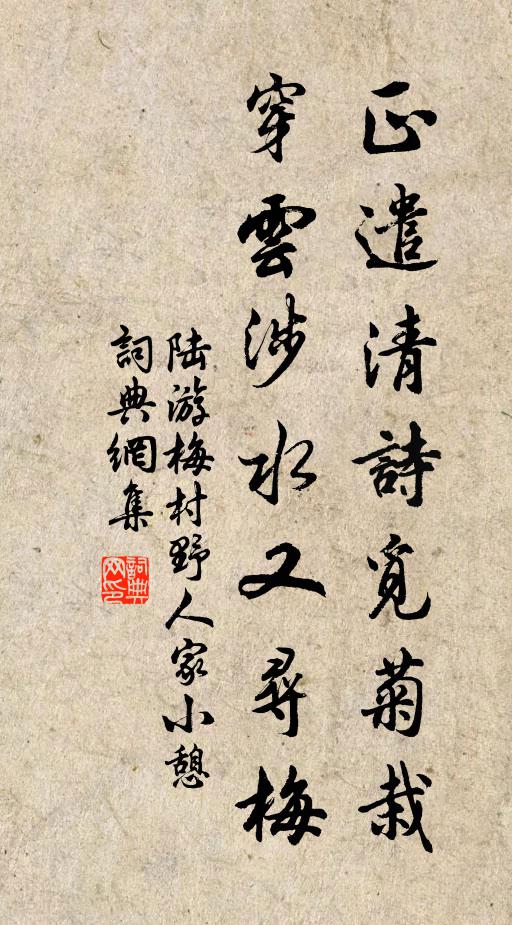 正遣清詩覓菊栽
穿雲涉水又尋梅
陆游梅村野人家小憩
詞典網集
詞典
网印